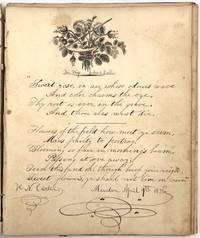 Sweet rose, in air whose odours wave
And color charms the eye,
Thy root is ever in the grave
And thou alas must die.
Flowers of the field how meet ye seem,
Man's frailty to portray,
Blooming so fair in morning's beam,
Passing at eve away;
Teach this, and oh! though brief your reign
Sweet flowers, ye shall not live in vain.
H. N.
April 9th